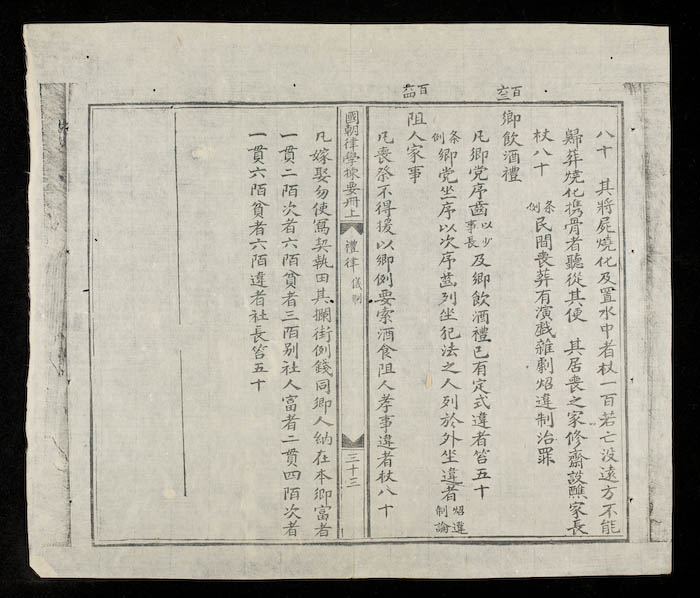 八十　其將屍燒化及置水中者杖一百若亡沒遠方不能
歸葬燒化携骨者聽從其便　其居喪之家修齋設醮家長
杖八十
条例　民間喪葬有演戯雜劇炤違制治罪
百六一
鄉飲酒禮
凡鄉党序齒以少事長及鄉飲酒禮已有定式違者笞五十
条例　鄉党坐序以次序茋列坐犯法之人列於外坐違者炤違制論
百六二
阻人家事
凡喪祭不得援以鄉例要索酒食阻人孝事違者杖八十
國朝律學揀要冊上　禮律　儀制　三十三
凡嫁娶勿使寫契執田其攔街例錢同鄉人納在本鄉富者
一貫二陌次者六陌貧者三陌別社人富者二貫四陌次者
一貫六陌貧者六陌違者社長笞五十